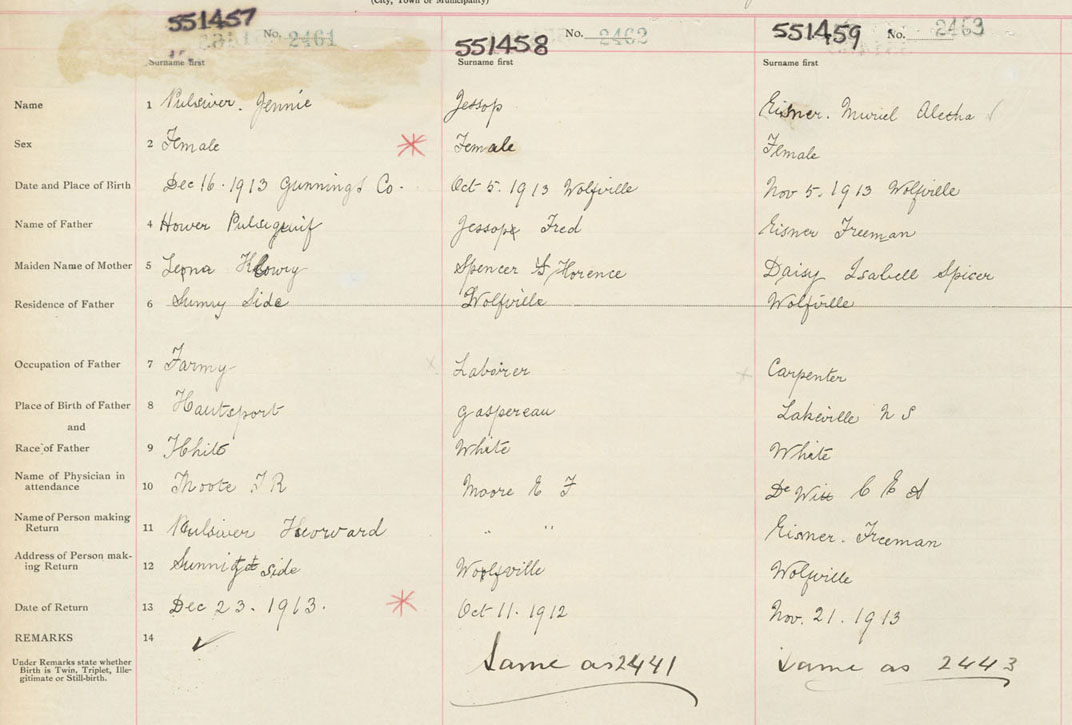 (City, Town or Municipality)
551457 No. 2461
551458 No. 2462
551459 No. 2463
Surname first Surname first Surname first
Name 1 Pulsiver. Jennie Jessop Eisner. Muriel Aletha
Sex 2 Female Female Female
Date and Place of Birth Dec 16. 1913 Co. Oct 5. 1913 Wolfville Nov 5. 1913 Wolfville
Name of Father 4 Hower Jessop Fred Eisner Freeman
Maiden Name of Mother 5 Leona Spencer Florence Daisy Isabell Spicer
Residence of Father 6 Sunny Side Wolfville Wolfville
Occupation of Father 7 Farmy Laborer Carpenter
Place of Birth of Father 8 Hautsport Gaspereau Lakeville N S
and
Race of Father 9 White White
Name of Physician in
attendance 10 F R Moore E F De Witt C E A
Name of Person making
Return 11 Pulsiver " " Eisner. Freeman
Address of Person mak-
ing Return 12 Side Wolfville Wolfville
Date of Return 13 Dec 23. 1913. Oct 11. 1912 Nov. 21. 1913
REMARKS 14 ✓
Under Remarks state whether
Birth is Twin, Triplet, Ille-
gitimate or Still-birth.
Same as 2441 Same as 2443